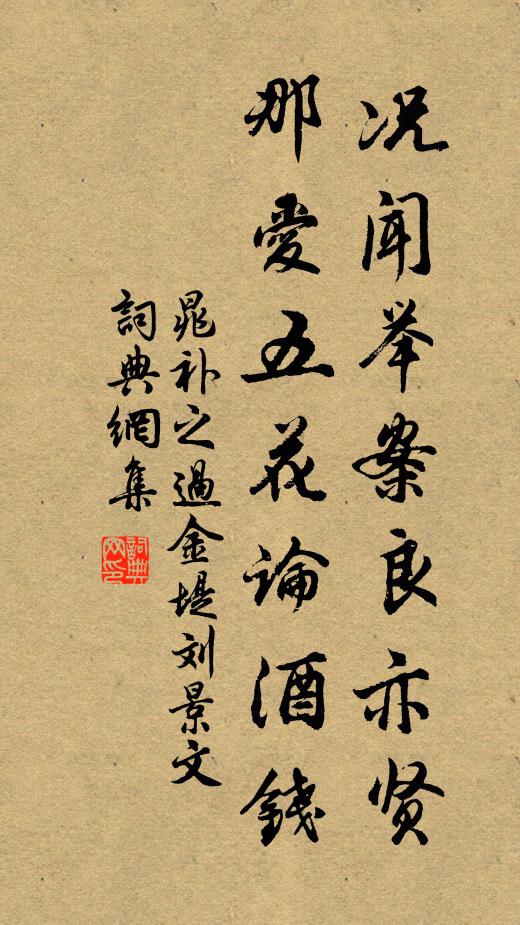 况闻举案良亦贤
那愛五花論酒錢
晁补之過金堤刘景文
詞典網集
詞典網印